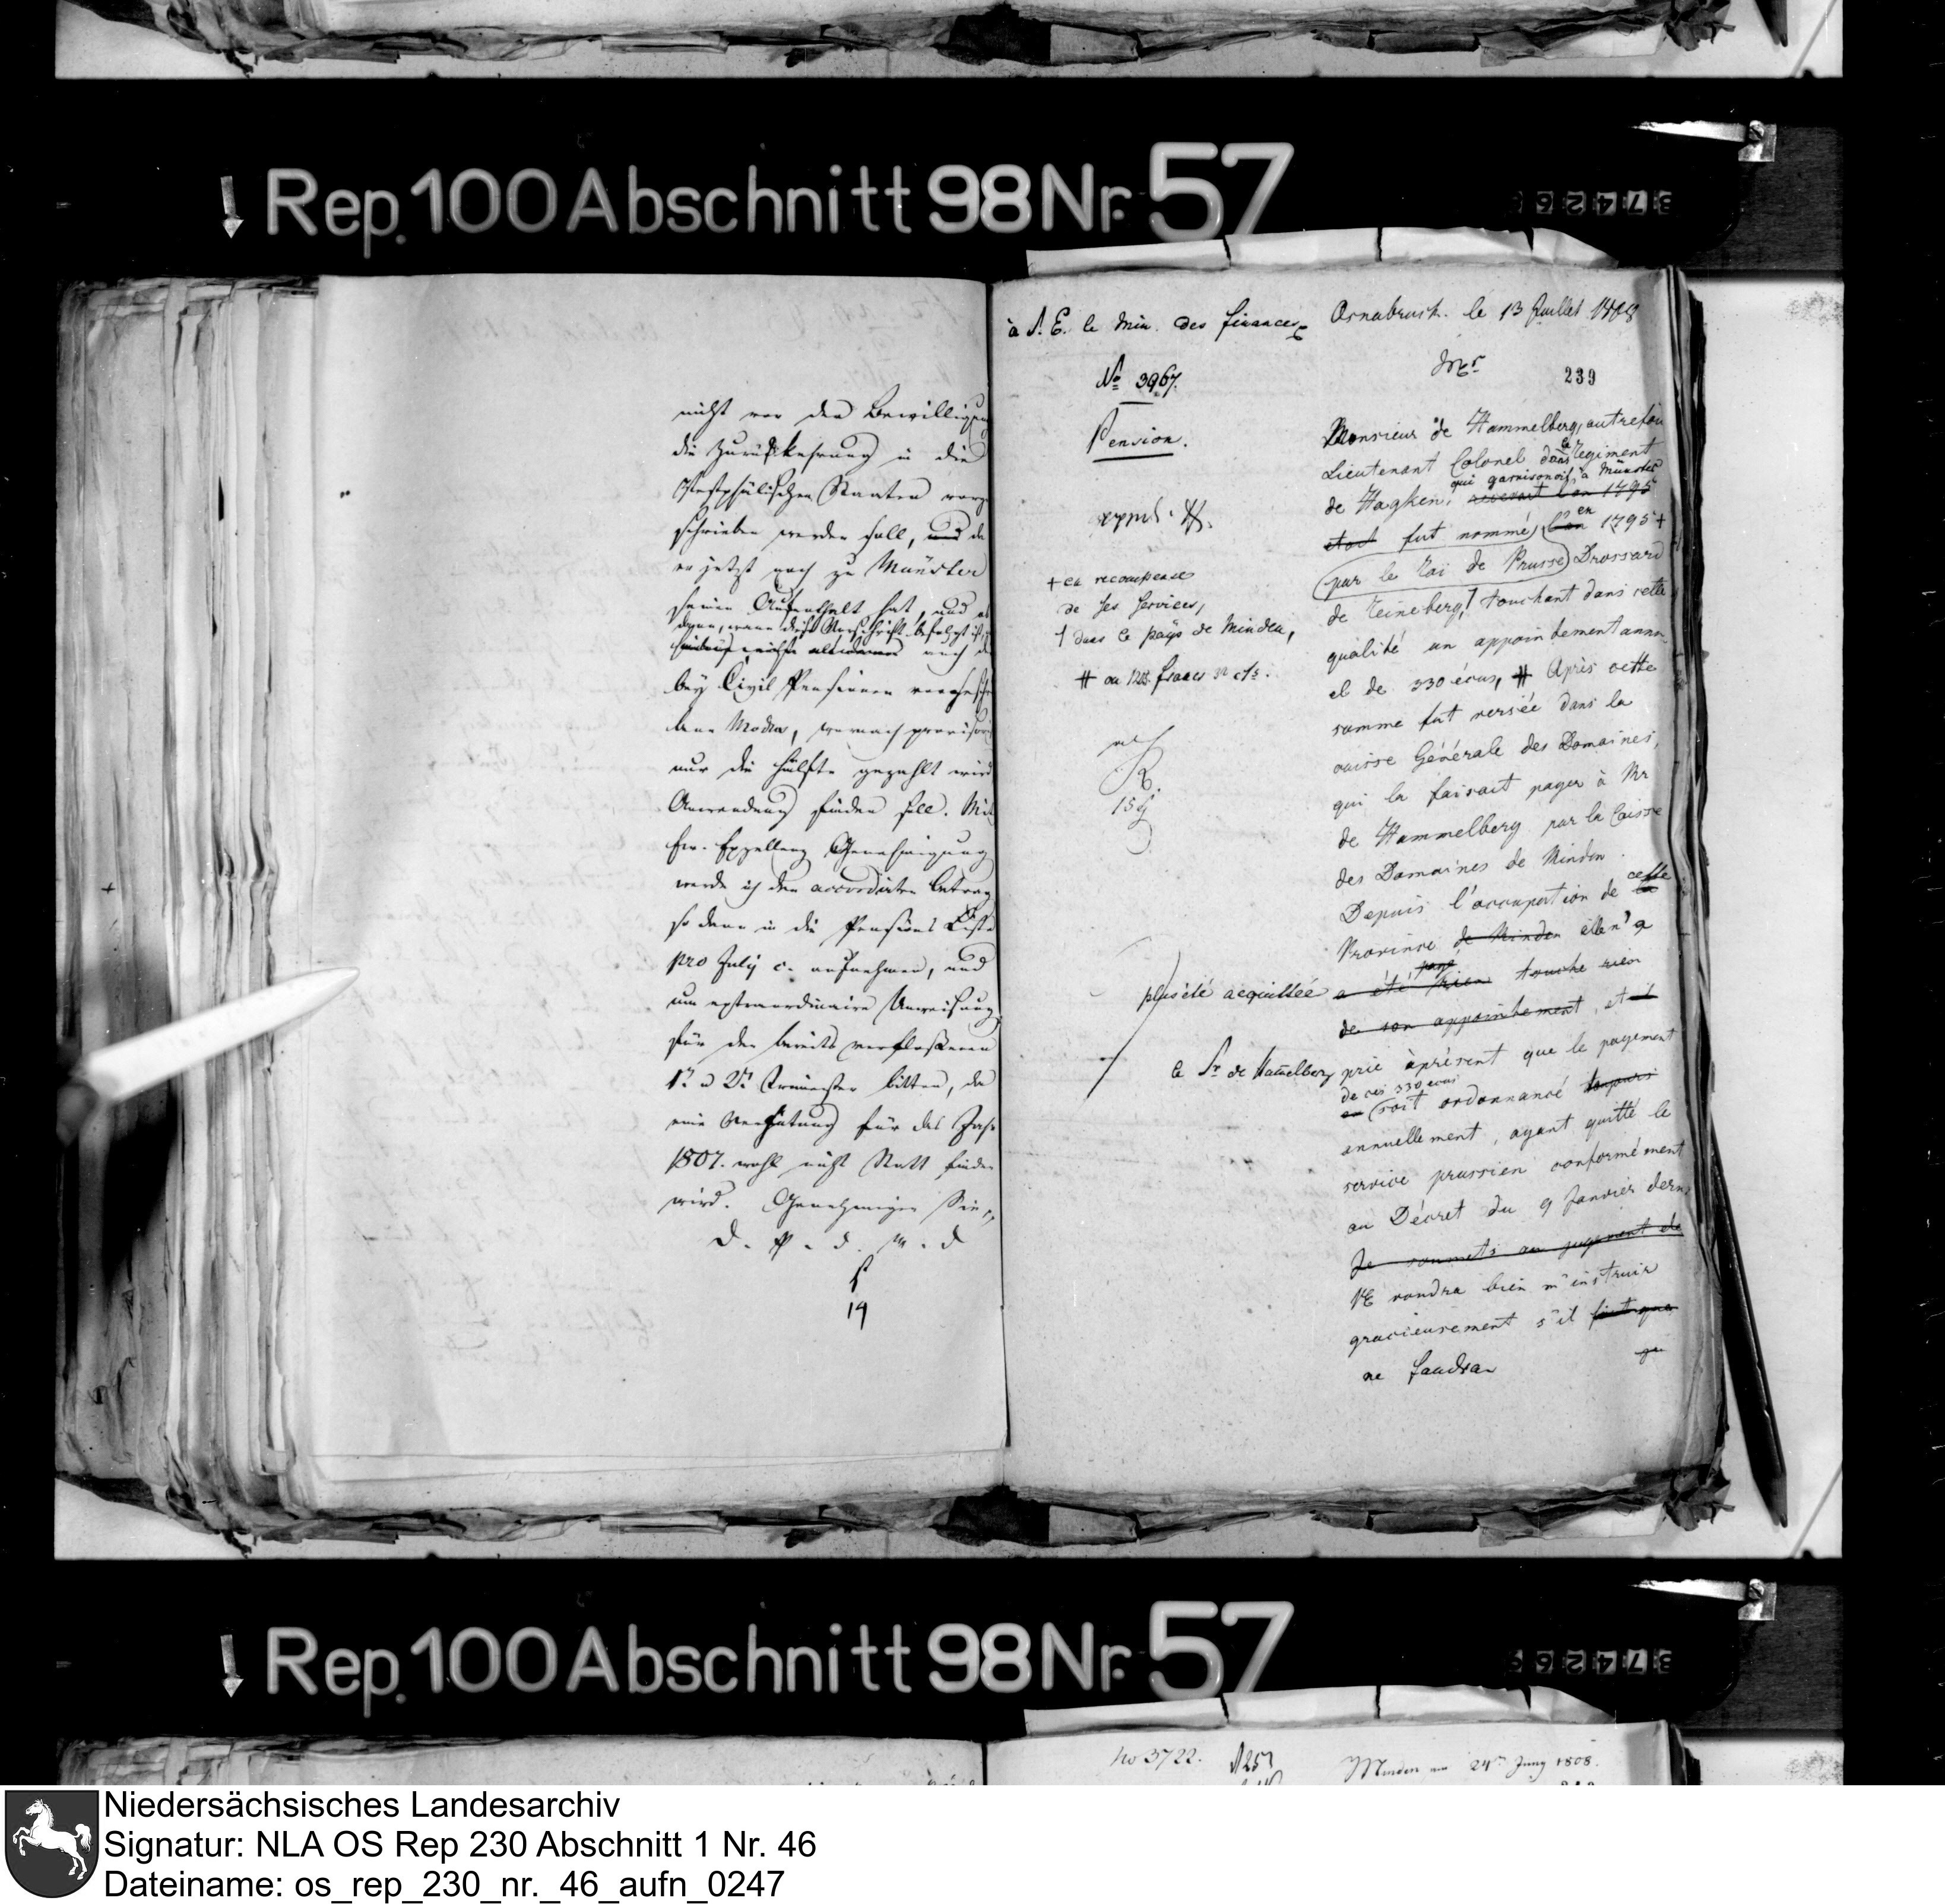 Rep. 100 Abschnitt 98 Nr. 57
37426
nicht vor der Bewilligung
die Zurückkehrung in die
Westphälischen Staaten vorge
schrieben werden soll, und da
er jetzt noch zu Münster
seinen Aufenthalt hat, und
dann, wenn diese Vorschrift befolgt ist,
auch
bey Civil Pensionen
Modus, wornach provisori
nur die Hälfte gezahlt wird
Anwendung finden soll. Mit
Ew. Exzellenz Genehmigung
werde ich den accordirten Betrag
so dann in die Pensions Liste
pro July c. aufnehmen, und
um extraordinaire Anweisung
für den bereits verfloßenen
bitten, da
eine Vergütung für das Jahr
1807. wohl nicht Statt finden
wird. Genehmigen Sie
D. P. d. W. d
19
à S. E. le Min. des finances
Osnabruck. le 13 Juillet 1808
No 3967.
Mr
239
Pension.
Monsieur de Hammelberg, autrefois
Lieutenant Colonel dans le Regiment
qui garnisonoit à Münster
de Hagken, l'an 1795
fut nommé en 1795 +
par le Roi de Prusse Drossard
de Reineberg, touchant dans cette
qualité un appointement annu
el de 330 écus, # Après cette
somme fut versée dans la
caisse Générale des Domaines,
qui la faisait payer à Mr
de Hammelberg par la Caisse
des Domaines de Minden.
Depuis l'occupation de cette
Province de Minden elle n'a
payé
a été rien touché rien
de son appointement, et il
prie àprésent que le payement
de ces 330 écus
soit ordonnancé toujours
annuellement, ayant quitté le
service prussien conformément
au Décret du 9 Janvier dern
Je soumets au jugement de
VE voudra bien m'instruir
gracieusement s'il faut que
ne faudra
+ en recompense
de ses services,
dans le pays de Minden,
# ou francs cts.
15
plus été acquittée
le Sr de Hammelberg
Rep. 100 Abschnitt 98 Nr. 57
37426
No 3722.
Minden am 24ten Juny 1808.
Niedersächsisches Landesarchiv
Signatur: NLA OS Rep 230 Abschnitt 1 Nr. 46
Dateiname: os_rep_230_nr._46_aufn_0247